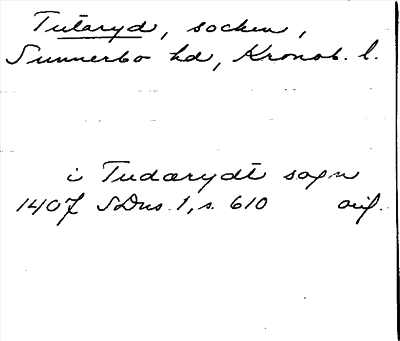 Tutaryd, socken,
Sunnerbo hd, Kronob. l.
i Tudærydt sogn
1407 SDns 1, s. 610 orig.